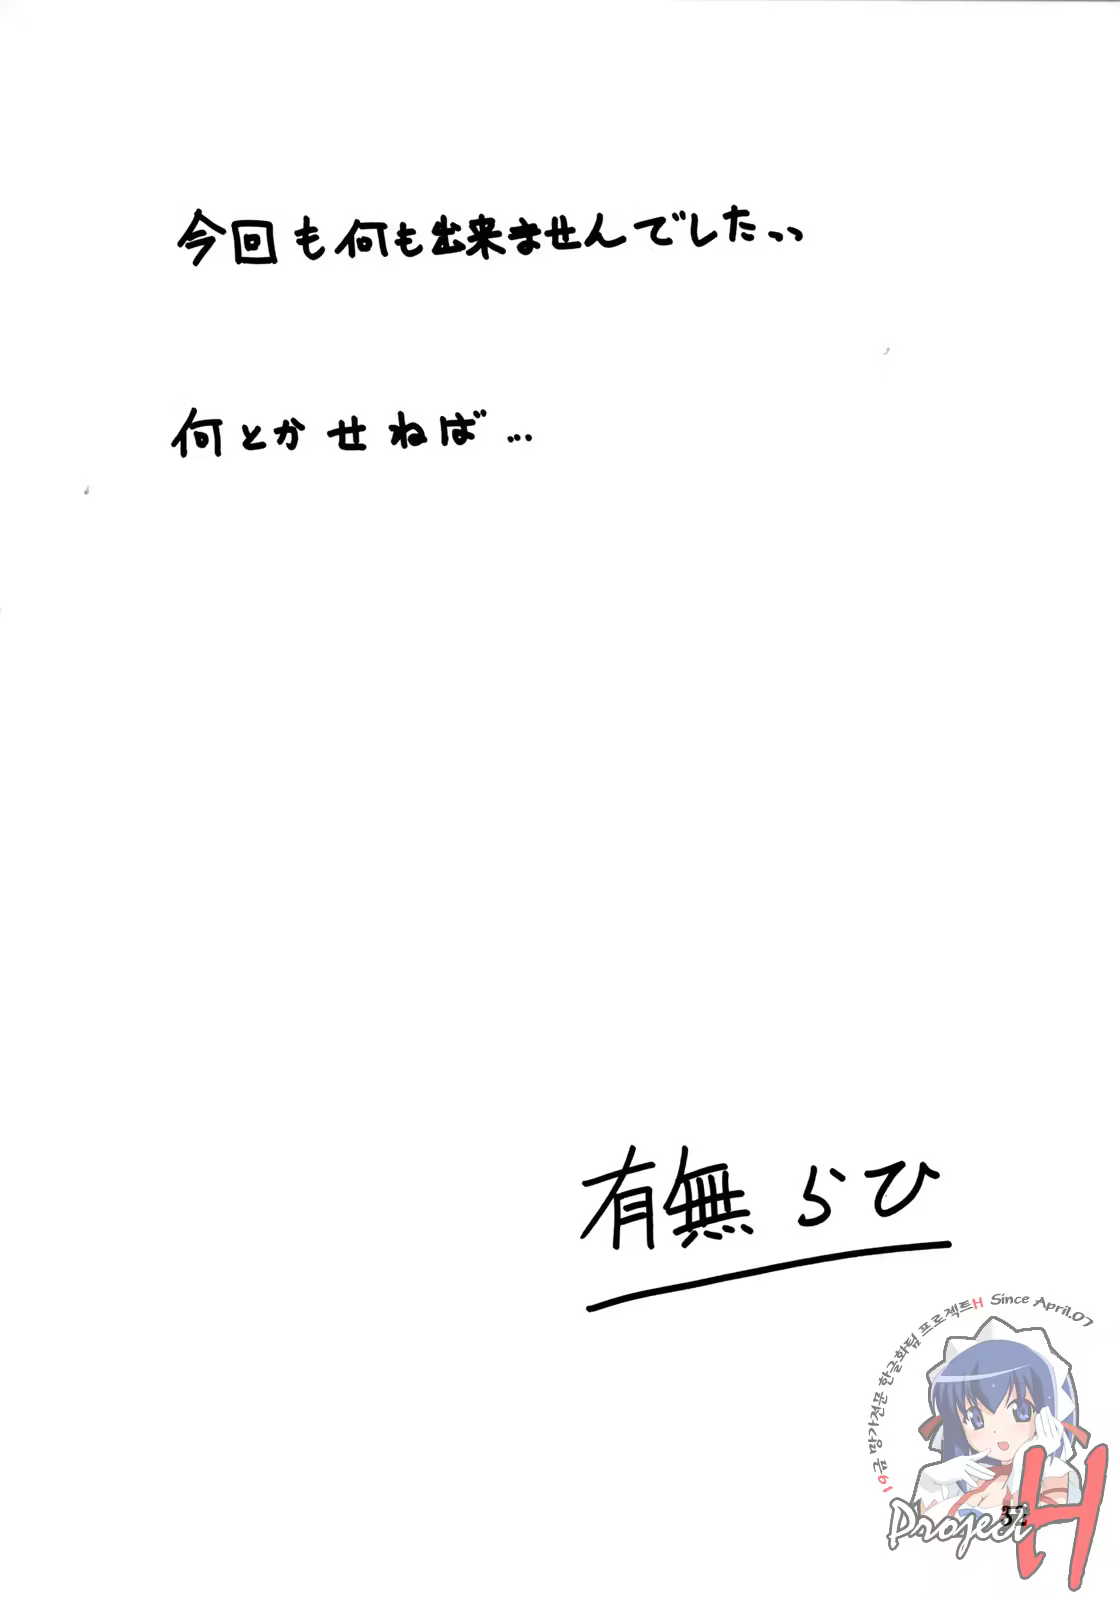 今回も何も出来ませんでしたっっ
何とかせねば…
有無らひ
19금 망가전문 한글화팀 프로젝트H Since April.07
Project H